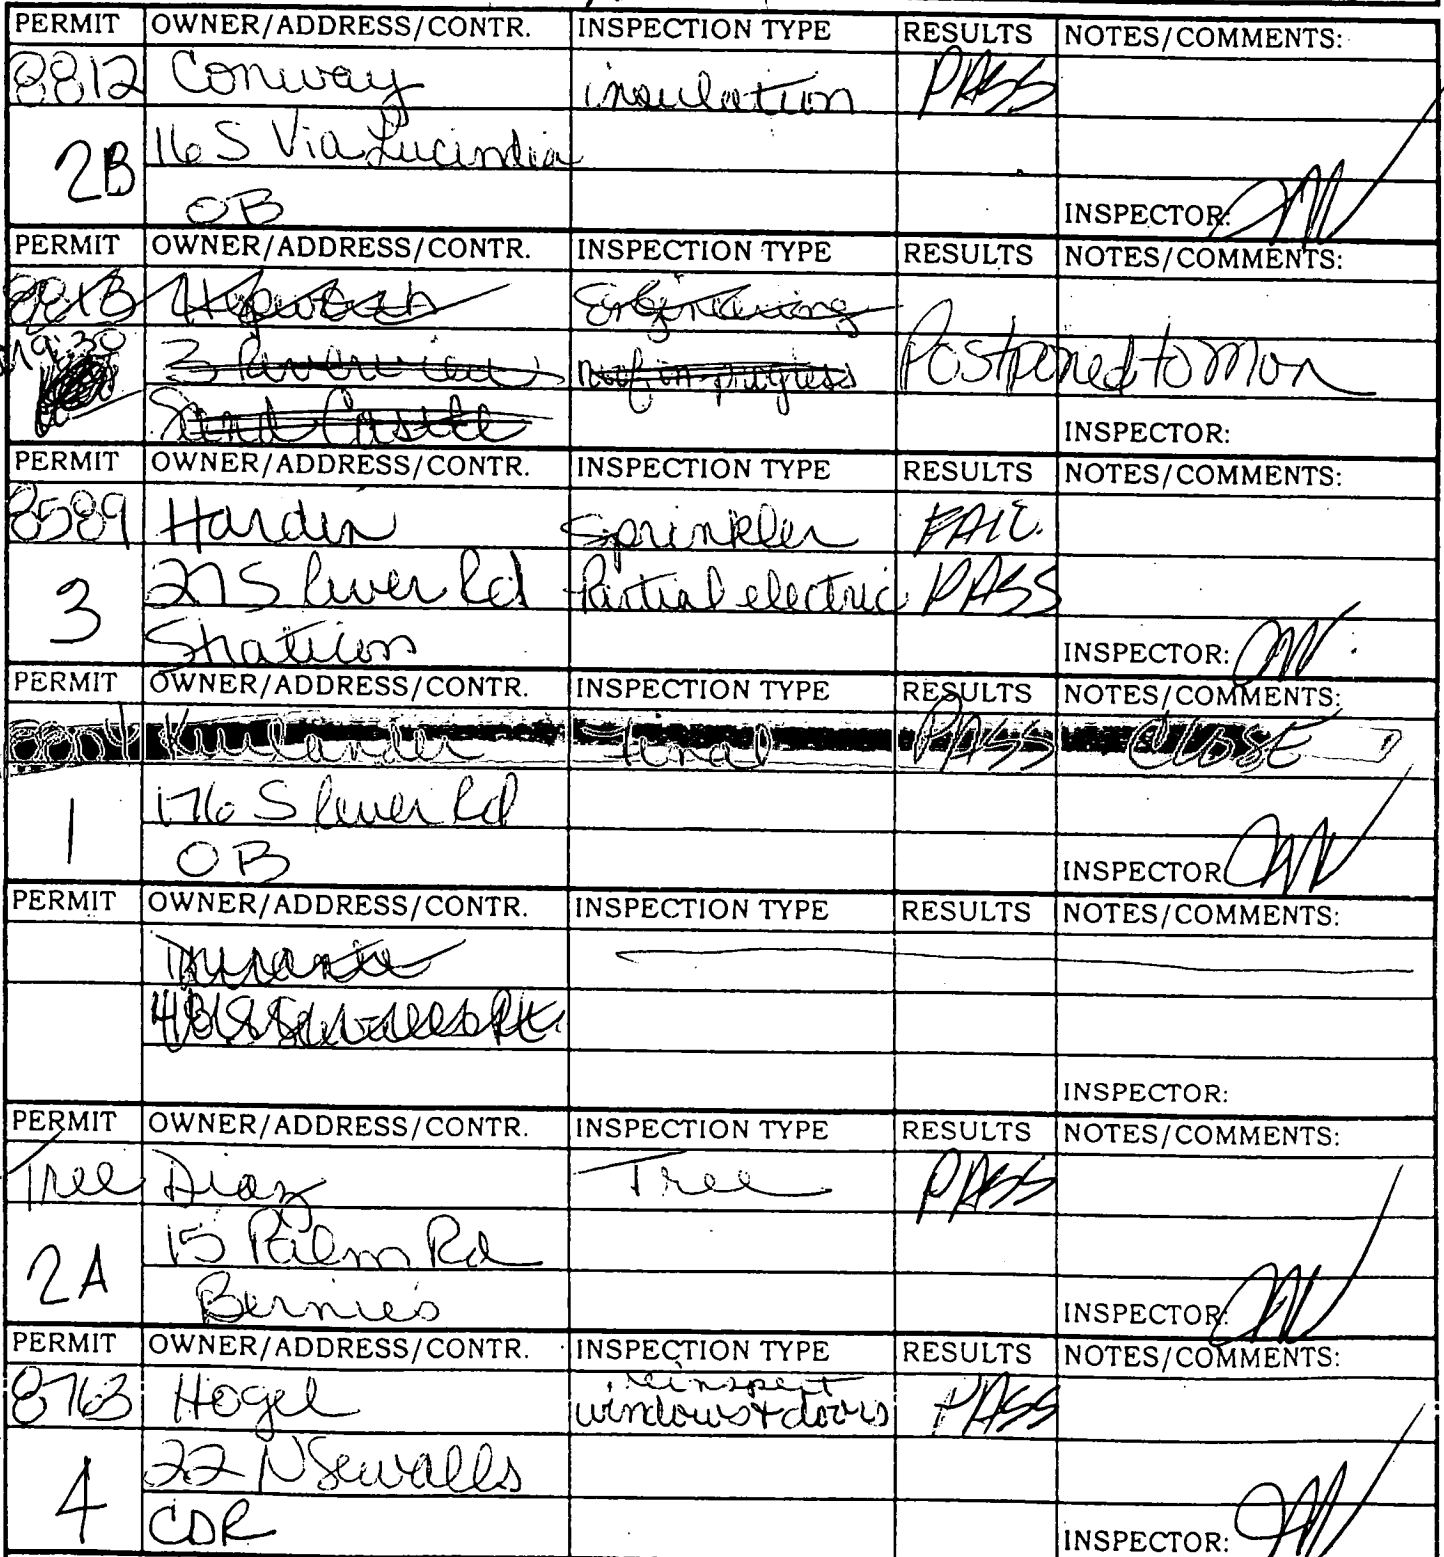 PERMIT OWNER/ADDRESS/CONTR. INSPECTION TYPE RESULTS NOTES/COMMENTS:
8812 Conway insulation PASS
2B 16 S Via Lucindia
OB INSPECTOR:
PERMIT OWNER/ADDRESS/CONTR. INSPECTION TYPE RESULTS NOTES/COMMENTS:
Engineering
9:30 3 roof in progress Postponed to Mon
Sand Castle INSPECTOR:
PERMIT OWNER/ADDRESS/CONTR. INSPECTION TYPE RESULTS NOTES/COMMENTS:
8589 Hardin Sprinkler FAIL.
3 27 S River Rd Partial electric PASS
INSPECTOR:
PERMIT OWNER/ADDRESS/CONTR. INSPECTION TYPE RESULTS NOTES/COMMENTS:
Kurlander Final PASS CLOSE
1 176 S River Rd
OB INSPECTOR
PERMIT OWNER/ADDRESS/CONTR. INSPECTION TYPE RESULTS NOTES/COMMENTS:
INSPECTOR:
PERMIT OWNER/ADDRESS/CONTR. INSPECTION TYPE RESULTS NOTES/COMMENTS:
Tree Diaz Tree PASS
2A 15 Palm Rd
Bernie's INSPECTOR:
PERMIT OWNER/ADDRESS/CONTR. INSPECTION TYPE RESULTS NOTES/COMMENTS:
8763 Hogel reinspect windows + doors PASS
4 22 N Sewalls
CDR INSPECTOR: